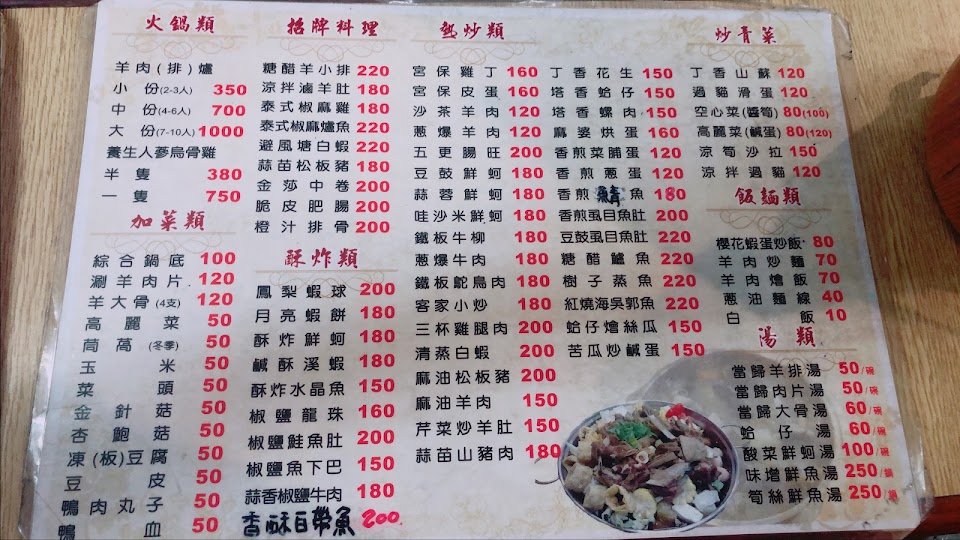 火鍋類
羊肉(排)爐
小份(2-3人) 350
中份(4-6人) 700
大份(7-10人) 1000
養生人蔘烏骨雞
半隻 380
一隻 750
加菜類
綜合鍋底 100
涮羊肉片 120
羊大骨(4支) 120
高麗菜 50
茼萵(冬季) 50
玉米 50
菜頭 50
金針菇 50
杏鮑菇 50
凍(板)豆腐 50
豆皮 50
鴨肉丸子 50
鴨血 50
招牌料理
糖醋羊小排 220
涼拌滷羊肚 180
泰式椒麻雞 180
泰式椒麻爐魚 220
避風塘白蝦 220
蒜苗松板豬 180
金莎中卷 200
脆皮肥腸 200
橙汁排骨 200
酥炸類
鳳梨蝦球 200
月亮蝦餅 180
酥炸鮮蚵 180
鹹酥溪蝦 180
酥炸水晶魚 150
椒鹽龍珠 160
椒鹽鮭魚肚 200
椒鹽魚下巴 150
蒜香椒鹽牛肉 180
香酥白帶魚 200
熱炒類
宮保雞丁 160
宮保皮蛋 160
沙茶羊肉 120
蔥爆羊肉 120
五更腸旺 200
豆鼓鮮蚵 180
蒜蓉鮮蚵 180
哇沙米鮮蚵 180
鐵板牛柳 180
蔥爆牛肉 180
鐵板鴕鳥肉 180
客家小炒 180
三杯雞腿肉 200
清蒸白蝦 200
麻油松板豬 200
麻油羊肉 150
芹菜炒羊肚 150
蒜苗山豬肉 180
丁香花生 150
塔香蛤仔 150
塔香螺肉 150
麻婆烘蛋 160
香煎菜脯蛋 120
香煎蔥蛋 120
香煎鯖魚 180
香煎虱目魚肚 220
豆鼓虱目魚肚 220
糖醋鱸魚 220
樹子蒸魚 220
紅燒海吳郭魚 220
蛤仔燴絲瓜 150
苦瓜炒鹹蛋 150
炒青菜
丁香山蘇 120
過貓滑蛋 120
空心菜(醬筍) 80(100)
高麗菜(鹹蛋) 80(120)
涼筍沙拉 150
涼拌過貓 120
飯麵類
櫻花蝦蛋炒飯 80
羊肉炒麵 70
羊肉燴飯 70
蔥油麵線 40
白飯 10
湯類
當歸羊排湯 50/碗
當歸肉片湯 50/碗
當歸大骨湯 60/碗
蛤仔湯 60/碗
酸菜鮮蚵湯 100/碗
味增鮮魚湯 250/鍋
筍絲鮮魚湯 250/鍋